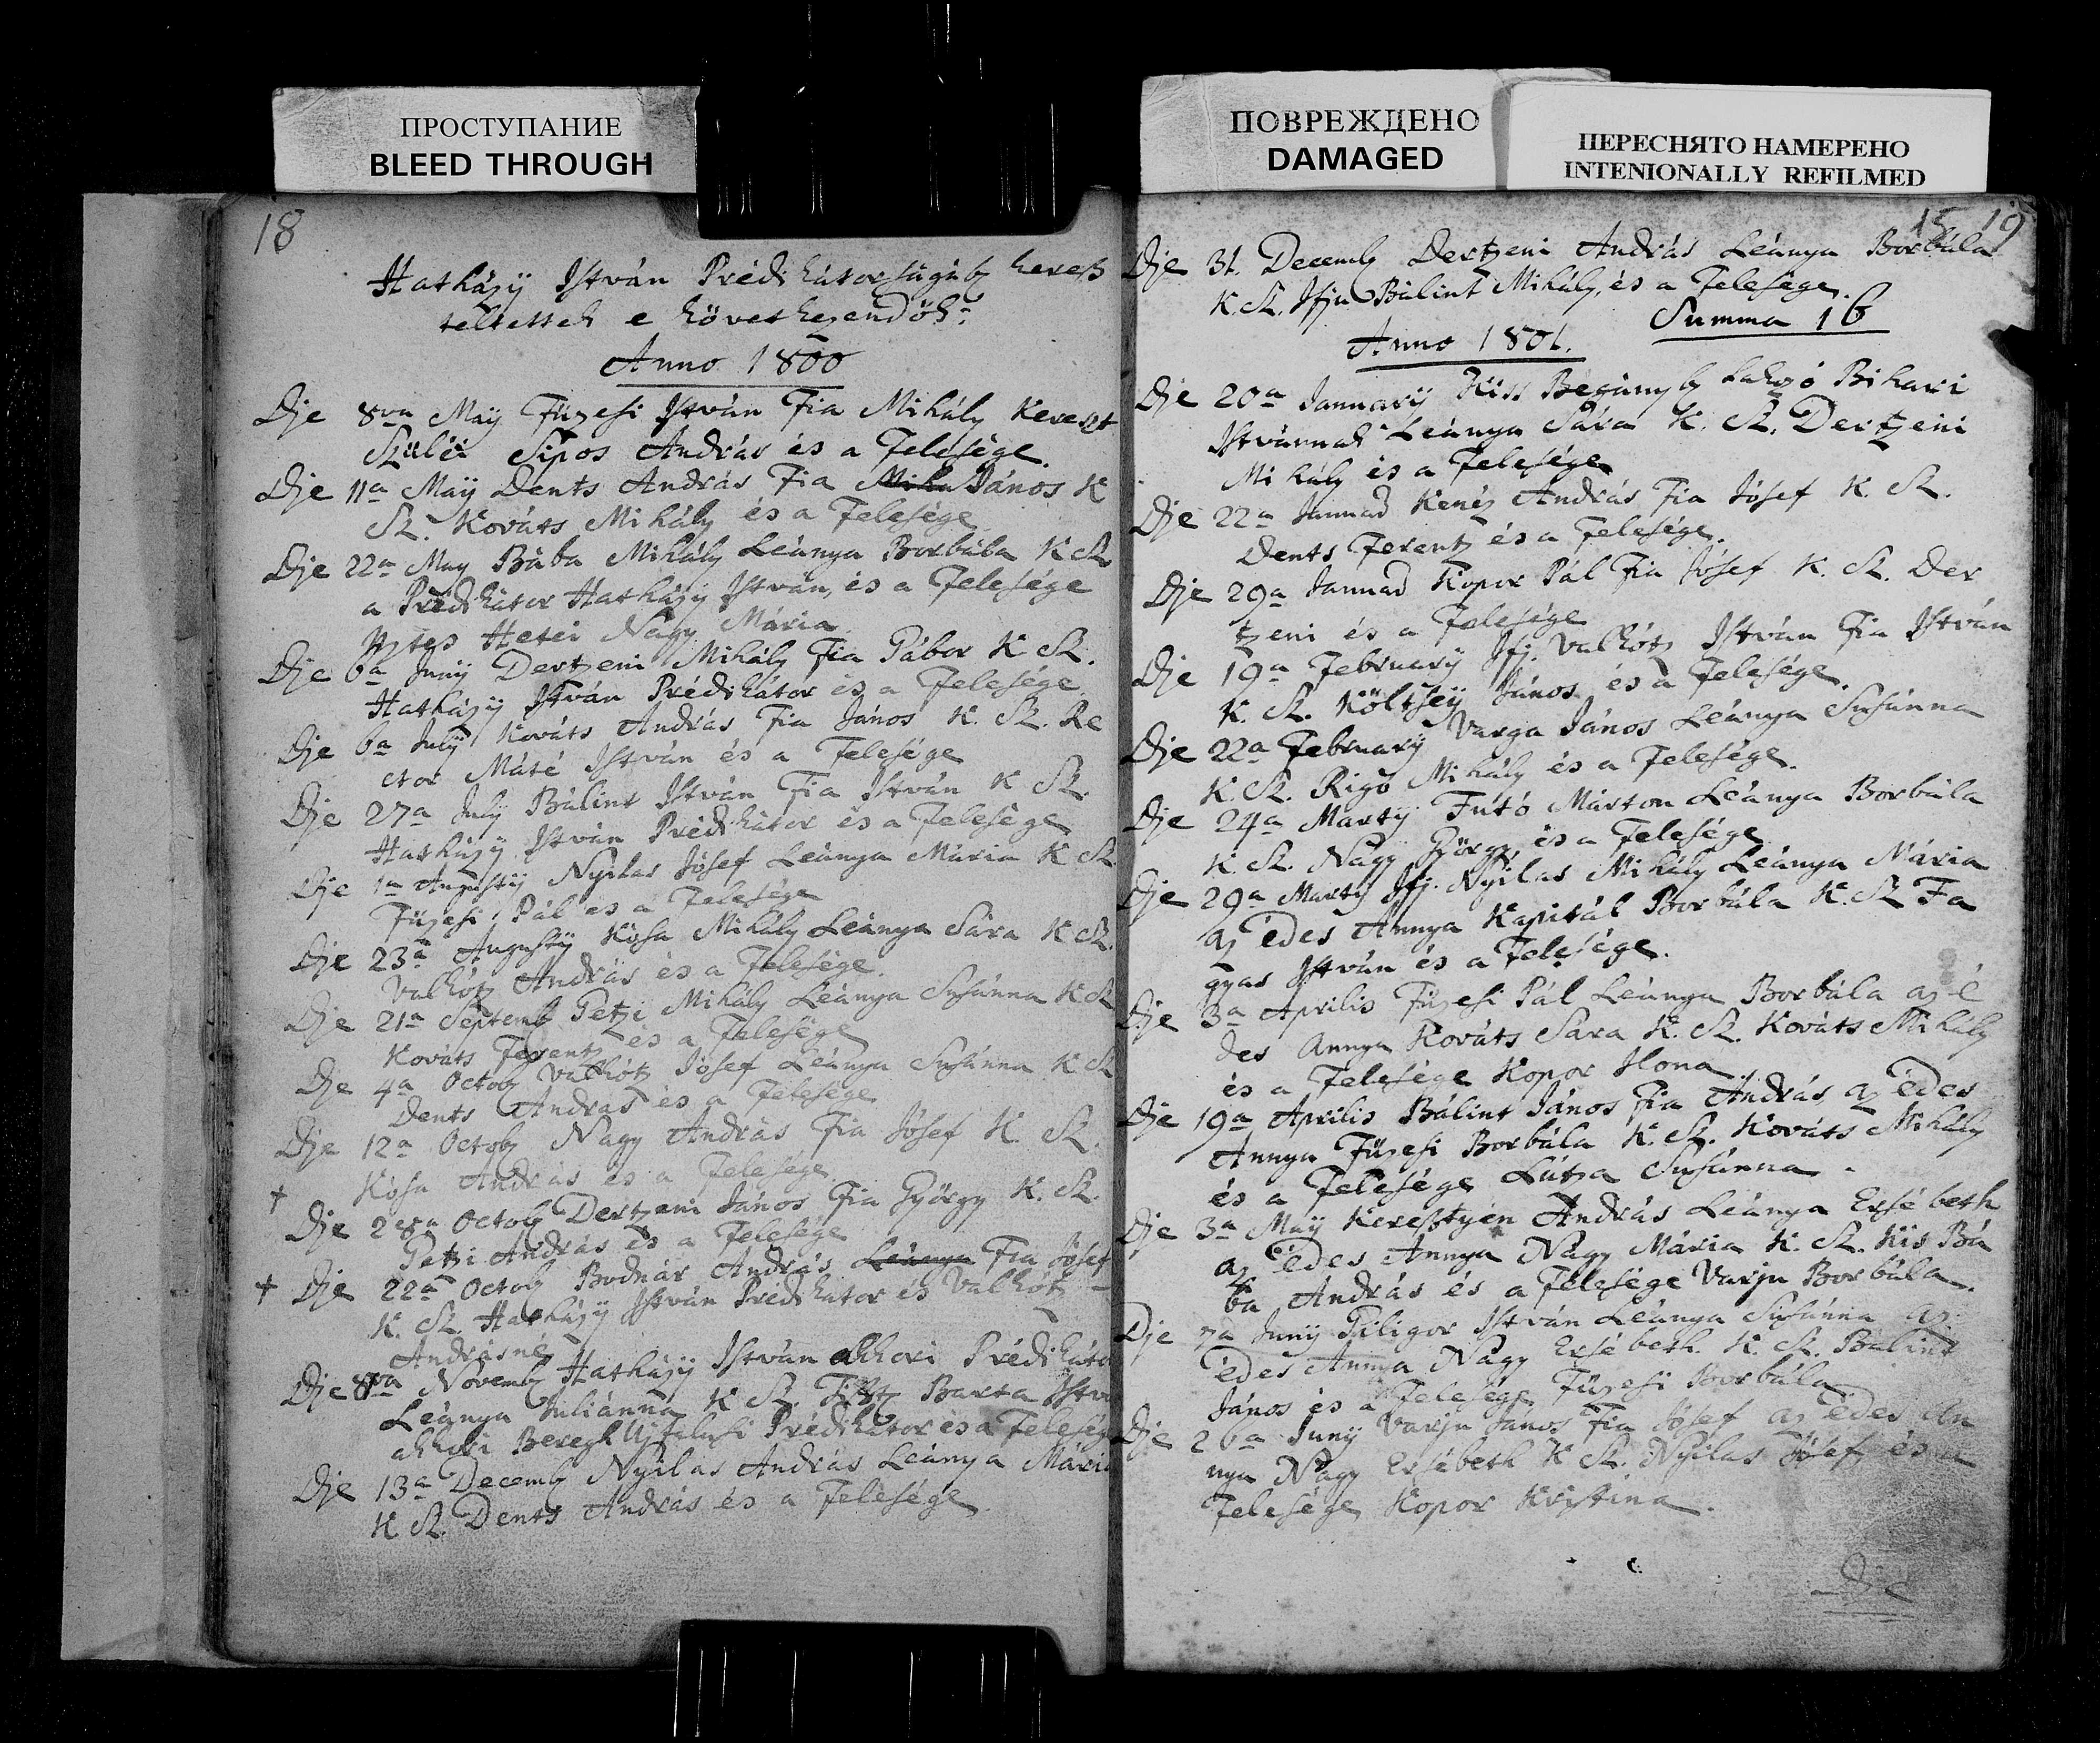 ПРОСТУПАНИЕ
BLEED THROUGH
ПОВРЕЖДЕНО
DAMAGED
ПЕРЕСНЯТО НАМЕРЕНО
INTENIONALLY REFILMED
18
Hatházÿ István Prédikátorságáb keresz
teltettek e következendők:
Anno 1800
Die 8va Maÿ Füzesi István Fia Mihály Kereszt
Szüléi Sipos András és a Felesége.
Die 11a Maÿ Dents András Fia János K
Sz. Kováts Mihály és a Felesége
Die 22a May Bába Mihály Leánya Borbála K Sz
a Prédikátor Hatházÿ István, és a Felesége
Hetei Nagy Mária
Die 6a Junÿ Dertzeni Mihály Fia Gábor K Sz.
Hatházÿ István Prédikátor és a Felesége
Die 6a Julÿ Kováts András Fia János K. Sz. Re
ctor Máté István és a Felesége
Die 27a Julÿ Bálint István Fia István K Sz.
Hatházÿ István Prédikátor és a Felesége
Die 1a Augustÿ Nyilas Jósef Leánya Mária K Sz
Füzesi Pál és a Felesége
Die 23a Augustÿ Kósa Mihály Leánya Sára K Sz.
Valkótz András és a Felesége.
Die 21a Septemb Petzi Mihály Leánya Susánna K Sz
Kováts Ferentz és a Felesége
Die 4a Octob Valkótz Jósef Leánya Susánna K Sz
Dents András és a Felesége
Die 12a Octob Nagy András Fia Jósef K. Sz.
Kósa András és a Felesége
† Die Octob Dertzeni János Fia György K. Sz.
Petzi András és a Felesége
† Die 22a Octob Bodnár András Leánya Fia Jósef
K. Sz. Hatházÿ István Prédikátor és Valkótz
Andrásné
Die 8va Novemb Hatházÿ István akkori Prédikáto
Leánya Juliánna K Sz. Barta Istv
akkori Beregh Ujfalusi Prédikátor és a Feleség
Die 13a Decemb Nyilas András Leánya Mária
K Sz. Dents András és a Felesége
15 19
Die 31. Decemb Dertzeni András Leánya Borbála
K. Sz. Ifju Bálint Mihály, és a Felesége.
Summa 16
Anno 1801.
Die 20a Januarÿ Kiss Bégányb Lakozó Bihari
Istvánnak Leánya Sára K. Sz. Dertzeni
Mihály és a Felesége
Die 22a Januar Kenéz András Fia Jósef K. Sz.
Dents Ferentz és a Felesége.
Die 29a Januar Kopor Pál Fia Jósef K. Sz. Der
tzeni és a Felesége
Die 19a Februarÿ Ifj. Valkótz István Fia István
K. Sz. Költseÿ János és a Felesége.
Die 22a Februarÿ Varga János Leánya Susánna
K. Sz. Rigó Mihály és a Felesége.
Die 24a Martÿ Fútó Márton Leánya Borbála
K. Sz. Nagy György és a Felesége
Die 29a Martÿ Ifj. Nyilas Mihály Leánya Mária
az Édes Annya Kapitál Borbála K. Sz Fa
gyas István és a Felesége.
Die 3a Aprilis Füzesi Pál Leánya Borbála az É
des Annya Kováts Sára K. Sz. Kováts Mihály
és a Felesége Kopor Ilona.
Die 19a Aprilis Bálint János Fia András az Édes
Annya Füzesi Borbála K. Sz. Kováts Mihály
és a Felesége Lútza Susánna.
Die 3a Maÿ Keresztyén András Leánya Ersébeth
az Édes Annya Nagy Mária K. Sz. Kis Bá
ba András és a Felesége Varju Borbála.
Die 7a Junÿ Giligor István Leánya Susánna az
Édes Annya Nagy Ersébeth. K. Sz. Bálint
János és a Felesége Füzesi Borbála.
Die 26a Junÿ Varju János Fia Jósef az Édes An
nya Nagy Ersébeth K Sz. Nyilas Jósef és a
Felesége Kopor Kristina.
Die